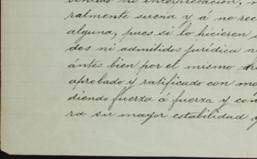 sentido ni interpretación, 
ralmente suena y á no rec
alguna, pues si lo hicieren
dos ni admitidos jurídica n
ántes bien por el mismo he
aprobado y ratificado con ma
diendo fuerza á fuerza, y con
ra su mayor estabilidad